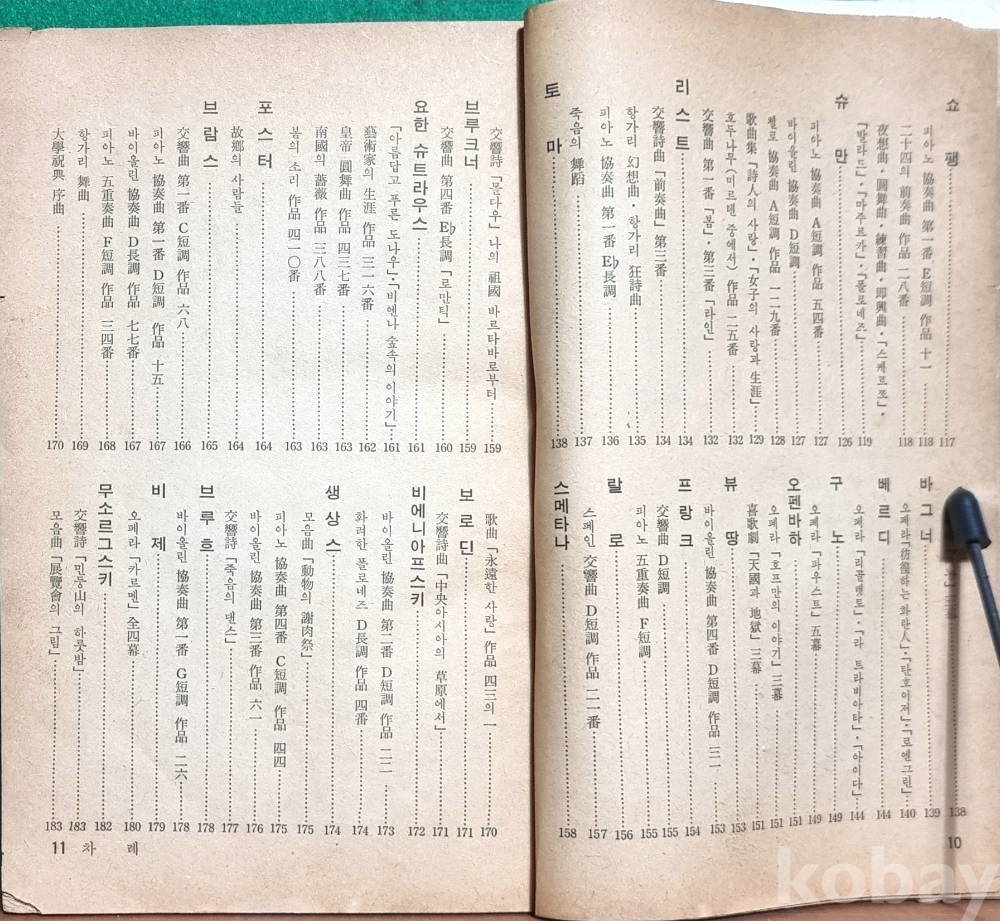 쇼팽 117
피아노 協奏曲 第一番 E短調 作品 十一 118
二十四의 前奏曲 作品 二八番 118
夜想曲·圓舞曲·練習曲·卽興曲·「스케르쪼」·
「발라드」·「마주르카」·「폴로네즈」 119
슈만 126
피아노 協奏曲 A短調 作品 五四番 127
바이올린 協奏曲 D短調 127
첼로 協奏曲 A短調 作品 一二九番 128
歌曲集「詩人의 사랑」·「女子의 사랑과 生涯」 129
호두나무(미르텐 중에서) 作品 二五番 132
交響曲 第一番「봄」·第三番「라인」 132
리스트 134
交響詩曲「前奏曲」第三番 134
항가리 幻想曲·항가리 狂詩曲 135
피아노 協奏曲 第一番 E♭長調 136
죽음의 舞蹈 137
토마 138
三幕 138
바그너 139
오페라「彷徨하는 화란人」·「탄호이저」·「로엔그린」 140
베르디 144
오페라「리골렛토」·「라 트라비아타」·「아이다」 144
구노 149
오페라「파우스트」五幕 149
오펜바하 151
오페라「호프만의 이야기」三幕 151
喜歌劇「天國과 地獄」二幕 151
뷰땅 153
바이올린 協奏曲 第四番 D短調 作品 三一 153
프랑크 154
交響曲 D短調 155
피아노 五重奏曲 F短調 155
랄로 156
스페인 交響曲 D短調 作品 二一番 157
스메타나 158
10
交響詩「몰다우」나의 祖國 바르타바로부터 159
브루크너 159
交響曲 第四番 E♭長調「로만틱」 160
요한 슈트라우스 161
「아름답고 푸른 도나우」·「비엔나 숲속의 이야기」 161
藝術家의 生涯 作品 三一六番 162
皇帝 圓舞曲 作品 四三七番 163
南國의 薔薇 作品 三八八番 163
봄의 소리 作品 四一〇番 163
포스터 164
故鄕의 사람들 164
브람스 165
交響曲 第一番 C短調 作品 六八 166
피아노 協奏曲 第一番 D短調 作品 十五 167
바이올린 協奏曲 D長調 作品 七七番 167
피아노 五重奏曲 F短調 作品 三四番 168
항가리 舞曲 169
大學祝典 序曲 170
歌曲「永遠한 사랑」作品 四三의 一 170
보로딘 171
交響詩曲「中央아시아의 草原에서」 171
비에니아프스키 172
바이올린 協奏曲 第二番 D短調 作品 二二 173
화려한 폴로네즈 D長調 作品 四番 174
생상스 174
모음曲「動物의 謝肉祭」 175
피아노 協奏曲 第四番 C短調 作品 四四 175
바이올린 協奏曲 第三番 作品 六一 176
交響詩「죽음의 댄스」 177
브루흐 178
바이올린 協奏曲 第一番 G短調 作品 二六 178
비제 179
오페라「카르멘」全四幕 180
무소르그스키 182
交響詩「민둥山의 하룻밤」 183
모음曲「展覽會의 그림」 183
11 차례
kobay